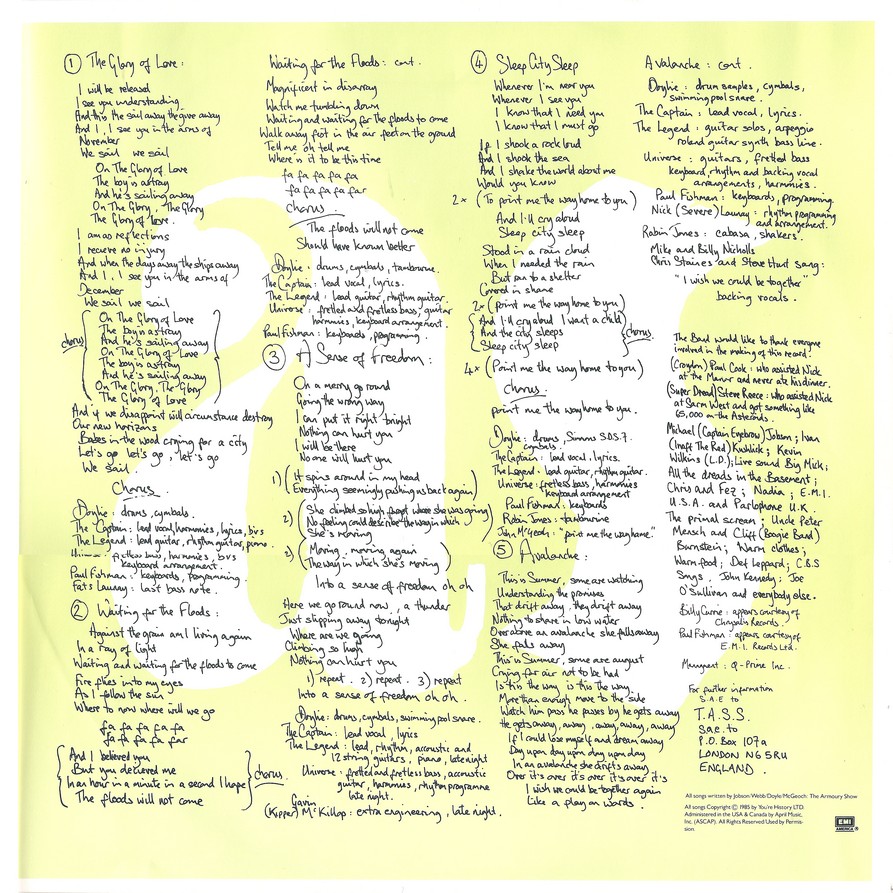 ① The Glory of Love :
I will be released
I see you understanding
And this the sail away the give away
And I, I see you in the arms of
November
We sail we sail
On The Glory of Love
The boy is astray
And he's sailing away
On The Glory, The Glory
The Glory of Love.
I am as reflections
I recieve no injury
And when the days away the ships away
And I, I see you in the arms of
December
We sail we sail
chorus
On The Glory of Love
The boy is astray
And he's sailing away
On The Glory of Love
The boy is astray
And he's sailing away
On The Glory, The Glory
The Glory of Love
And if we disappoint will circumstance destroy
Our new horizons
Babes in the wood crying for a city
Let's go let's go, let's go
We sail
Chorus
Doyle : drums, cymbals.
The Captain : lead vocal, harmonies, lyrics, bvs
The Legend : lead guitar, rhythm guitar, piano.
Universe : fretless bass, harmonies, bvs
keyboard arrangement.
Paul Fishman : keyboards, programming.
Fats Launay : last bass note.
② Waiting for the Floods :
Against the grain am I living again
In a ray of light
Waiting and waiting for the floods to come
Fire flies into my eyes
As I follow the sun
Where to now where will we go
fa fa fa fa fa
fa fa fa fa far
And I believed you
But you decieved me
In an hour in a minute in a second I hope
The floods will not come
chorus.
Waiting for the Floods : cont.
Magnificent in disarray
Watch me tumbling down
Waiting and waiting for the floods to come
Walk away foot in the air feet on the ground
Tell me oh tell me
Where is it to be this time
fa fa fa fa fa
fa fa fa fa far
chorus.
The floods will not come
Should have known better
Doyle : drums, cymbals, tambourine.
The Captain : lead vocal, lyrics.
The Legend : lead guitar, rhythm guitar.
Universe : fretted and fretless bass, guitar
harmonies, keyboard arrangement.
Paul Fishman : keyboards, programming.
③ A Sense of Freedom :
On a merry go round
Going the wrong way
I can put it right bright
Nothing can hurt you
I will be there
No one will hurt you
1) (It spins around in my head
Everything seemingly pushing us back again)
2) (She climbed so high, forgot where she was going
No feeling could describe the way in which
She's moving)
3) (Moving, moving again
The way in which she's moving)
Into a sense of freedom oh oh
Here we go round now, a thunder
Just slipping away tonight
Where are we going
Climbing so high
Nothing can hurt you
1) repeat. 2) repeat. 3) repeat
Into a sense of freedom oh oh.
Doyle : drums, cymbals, swimming pool snare.
The Captain : lead vocal, lyrics
The Legend : lead, rhythm, acoustic and
12 string guitars, piano, late night
Universe : fretted and fretless bass, accoustic
guitar, harmonies, rhythm programme
late night.
Gavin
(Kipper) McKillop : extra engineering, late night.
④ Sleep City Sleep
Whenever I'm near you
Whenever I see you
I know that I need you
I know that I must go
If I shook a rock loud
And I shook the sea
And I shake the world about me
Would you know
2 x (To point me the way home to you)
And I'll cry aloud
Sleep city sleep
Stood in a rain cloud
When I needed the rain
But ran to a shelter
Covered in shame
2 x (point me the way home to you)
And I'll cry aloud I want a child
And the city sleeps
Sleep city sleep
chorus.
4 x (Point me the way home to you)
Chorus.
point me the way home to you.
Doyle : drums, Simms S.D.S.7.
cymbals
The Captain : lead vocal, lyrics.
The Legend : lead guitar, rhythm guitar.
Universe : fretless bass, harmonies
keyboard arrangement
Paul Fishman : keyboards
Robin Jones : tambourine
John McGeoch : "point me the way home"
⑤ Avalanche :
This is Summer, some are watching
Understanding the promises
That drift away, they drift away
Nothing to share in low water
Over above an avalanche she falls away
She fades away
This is Summer, some are august
Crying for air not to be had
Is this the way is this the way
More than enough move to the side
Watch him pass he passes by he gets away
He gets away, away, away, away, away
If I could lose myself and dream away
Day upon day upon day upon day
In an avalanche she drifts away
Over it's over it's over it's over it's
I wish we could be together again
Like a play on words.
Avalanche : cont.
Doyle : drum samples, cymbals,
swimming pool snare.
The Captain : lead vocal, lyrics.
The Legend : guitar solos, arpeggio
roland guitar synth bass line.
Universe : guitars, fretted bass
keyboard, rhythm and backing vocal
arrangements, harmonies.
Paul Fishman : keyboards, programming.
Nick (Severe) Launay : rhythm programming
and arrangement.
Robin Jones : cabasa, shakers.
Mike and Billy Nicholls
Chris Staines and Steve Hurt sang :
"I wish we could be together"
backing vocals.
The Band would like to thank everyone
involved in the making of this record.
(Croydon) Paul Cook : who assisted Nick
at the Manor and never ate his dinner.
(Super Dread) Steve Reece : who assisted Nick
at Sarm West and got something like
65,000 on the Asteroids.
Michael (Captain Eyebrow) Jobson; Ivan
(Inaff The Red) Kushlick; Kevin
Wilkins (L.D.); Live sound Big Mick;
All the dreads in the Basement;
Chris and Fez; Nadia; E.M.I.
U.S.A. and Parlophone U.K.
The primal scream; Uncle Peter
Mensch and Cliff (Boogie Band)
Burnstein; Warm clothes;
Warm food; Def Leppard; C.B.S
Songs. John Kennedy; Joe
O'Sullivan and everybody else.
Billy Currie : appears courtesy of
Chrysalis Records.
Paul Fishman : appears courtesy of
E.M.I. Records Ltd.
Management : Q-Prime Inc.
For further information
S.A.E to
T.A.S.S.
s.a.e. to
P.O. Box 107a
LONDON N6 5RU
ENGLAND.
All songs written by Jobson/Webb/Doyle/McGeoch. The Armoury Show
All songs Copyright © 1985 by You're History LTD.
Administered in the USA & Canada by April Music,
Inc. (ASCAP). All Rights Reserved/Used by Permis-
sion
EMI
AMERICA®